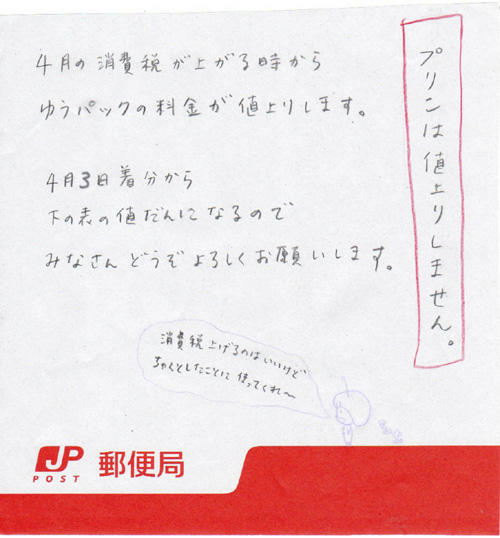 プリンは値上りしません。
4月の消費税が上がる時から
ゆうパックの料金が値上りします。
4月3日着分から
下の表の値だんになるので
みなさんどうぞよろしくお願いします。
消費税上げるのはいいけど
ちゃんとしたことに使ってくれ〜
JP
POST
郵便局